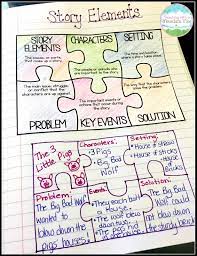 Story Elements
STORY ELEMENTS
CHARACTERS
SETTING
The people or animals who are important to the story.
The time and place where the story takes place.
The main issue, struggle, or conflict that the characters are up against.
The important events or actions that occur during the story.
PROBLEM
KEY EVENTS
SOLUTION
The 3 Little Pigs
Characters:
3 Pigs
Big Bad Wolf
Setting:
House of straw
House of Sticks
House of Bricks
Problem:
The Big Bad Wolf wanted to blow down the pigs' houses.
Events:
They each built a House.
The wolf blew down two.
Solution:
The Big Bad Wolf could not blow down the sturdy brick